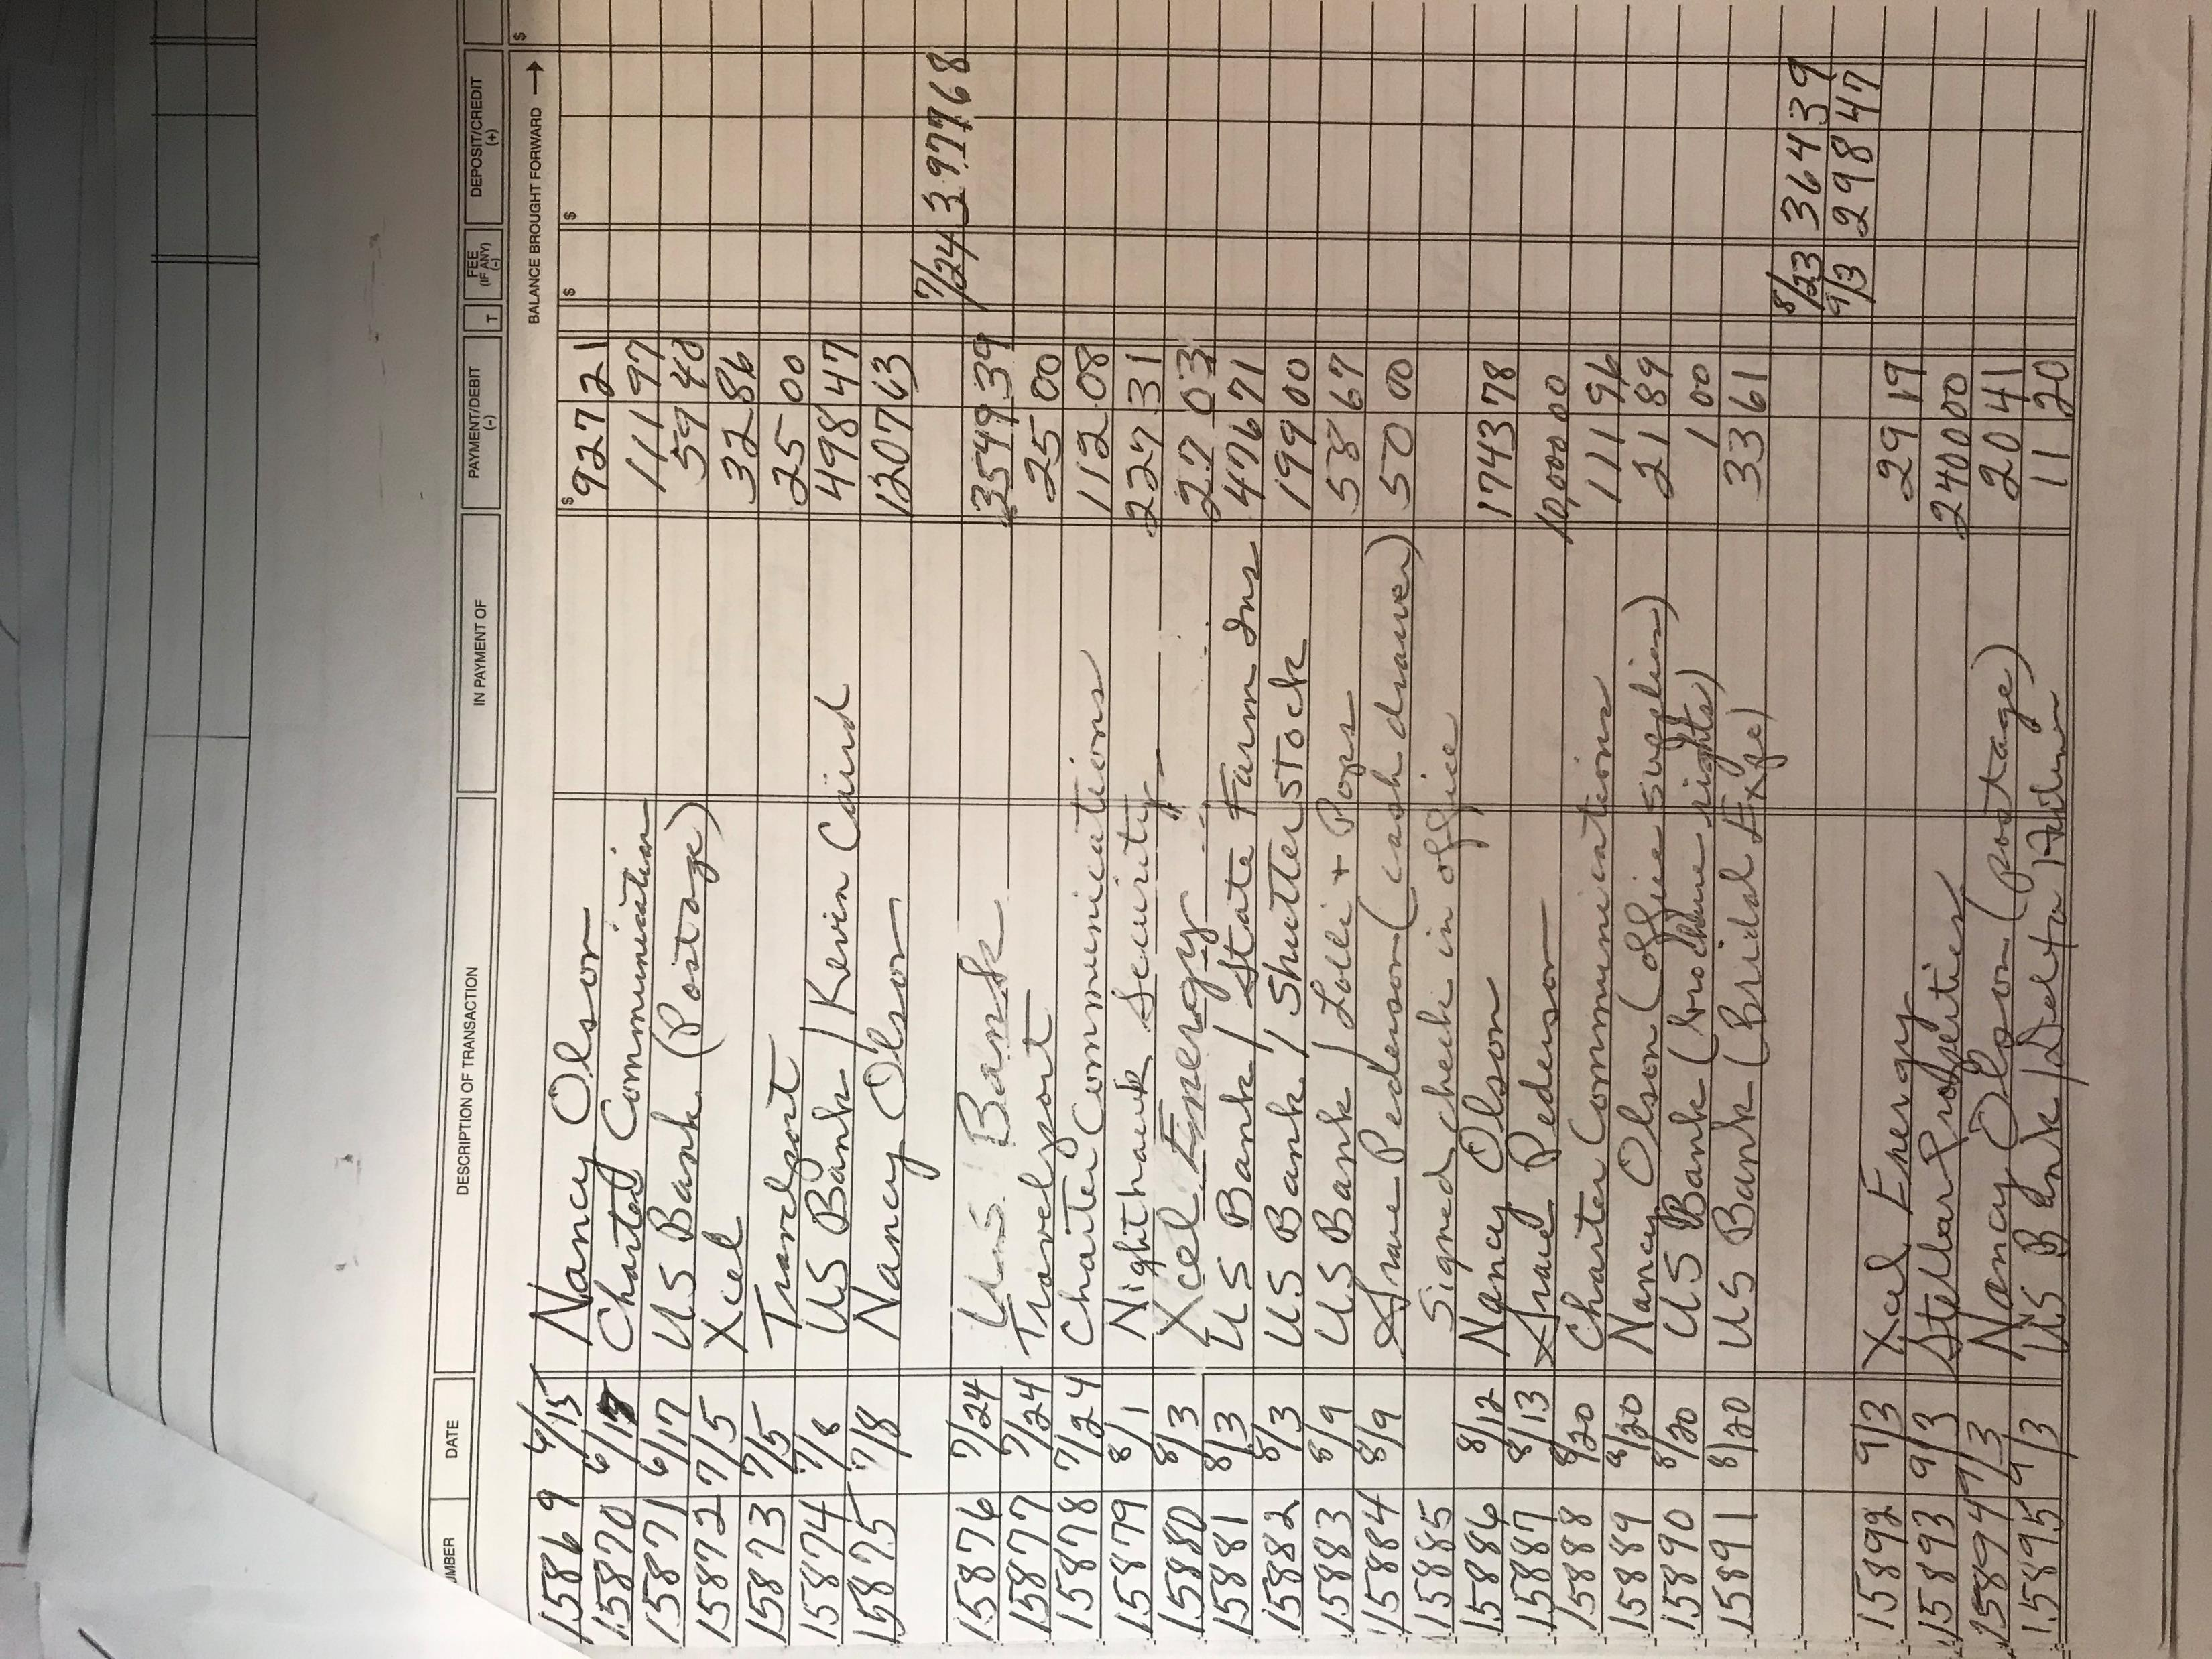 NUMBER DATE DESCRIPTION OF TRANSACTION IN PAYMENT OF PAYMENT/DEBIT (-) T FEE (IF ANY) (-) DEPOSIT/CREDIT (+) $
BALANCE BROUGHT FORWARD →
15869 6/15 Nancy Olson $ 927 21 $ $
15870 6/17 Charted Communication 111 97
15871 6/17 US Bank (Postage) 59 40
15872 7/5 Xcel 32 86
15873 7/5 Travelport 25 00
15874 7/8 US Bank / Kevin Caird 498 47
15875 7/8 Nancy Olson 1207 63
7/24 3977 68
15876 7/24 US Bank 3549 39
15877 7/24 Travelport 25 00
15878 7/24 Charter Communications 112 08
15879 8/1 Nighthawk Security 227 31
15880 8/3 Xcel Energy 27 03
15881 8/3 US Bank / State Farm Ins 476 71
15882 8/3 US Bank / Shutterstock 199 00
15883 8/9 US Bank / Lolli + Pops 58 67
15884 8/9 Pederson (cash drawer) 50 00
15885 Signed check in office
15886 8/12 Nancy Olson 1743 78
15887 8/13 Pederson 10,000 00
15888 8/20 Charter Communications 111 96
15889 8/20 Nancy Olson (office supplies) 21 89
15890 8/20 US Bank (brochure rights) 1 00
15891 8/20 US Bank (Bridal Expo) 33 61
8/23 3644 39
9/3 2988 47
15892 9/3 Xcel Energy 29 19
15893 9/3 Stellar Properties 2400 00
15894 9/3 Nancy Olson (postage) 20 41
15895 9/3 US Bank / Delta 11 20